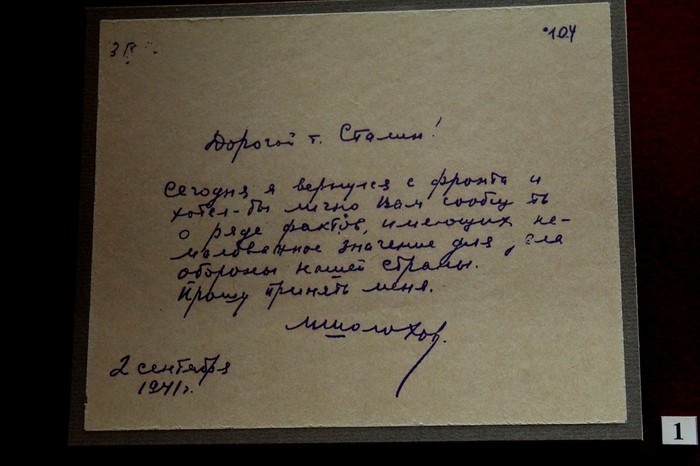 104
Дорогой т. Сталин!
Сегодня я вернулся с фронта и
хотел-бы лично Вам сообщить
о ряде фактов, имеющих не-
маловажное значение для дела
обороны нашей страны.
Прошу принять меня.
МШолохов.
2 сентября
1941 г.
1